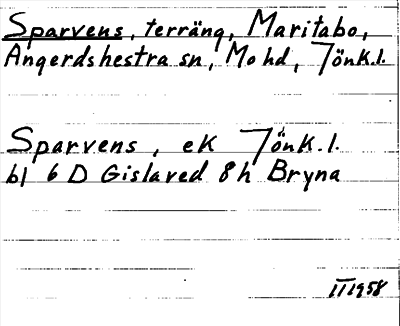 Sparvens, terräng, Maritabo,
Angerdshestra sn, Mohd, Jönk.l.
Sparvens, ek Jönk.l.
bl 6 D Gislaved 8h Bryna
II 1958